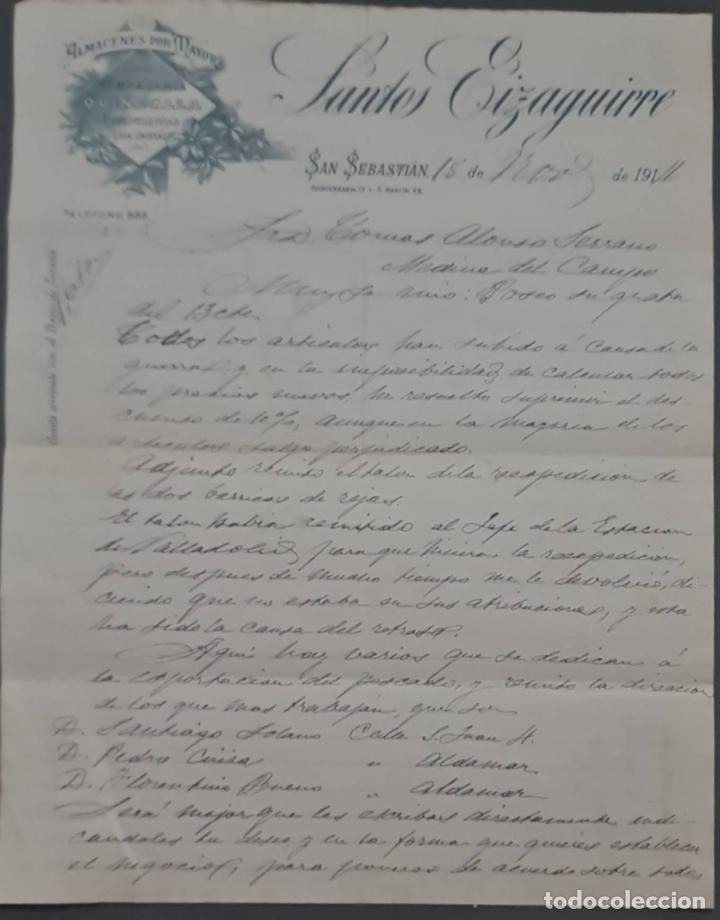 ALMACENES POR MAYOR
QUINCALLA
Santos Eizaguirre
SAN SEBASTIÁN, 18 de Nov de 191
TELÉFONO 888
Sr D. Tomas Alonso Serrano
Medina del Campo
Muy Sr mio: Poseo su grata
del 13 cte.
Todos los articulos han subido á causa de la
guerra, y en la imposibilidad de calcular todos
los precios nuevos, he resuelto suprimir el des-
cuento de 10%, aunque en la mayoria de los
articulos salgo perjudicado.
Adjunto remito el talon de la reexpedicion de
las dos barricas de rejas.
El talon habia remitido al Jefe de la Estacion
de Valladolid para que hiciera la reexpedicion,
pero despues de mucho tiempo me le devolvió, di-
ciendo que no estaba en sus atribuciones, y esta
ha sido la causa del retraso.
Aqui hay varios que se dedican á
la exportacion del pescado, y remito la direccion
de los que mas trabajan, que son
D. Santiago Solano Calle S. Juan
D. Pedro " Aldamar
D. Florentino Bueno " Aldamar
Será mejor que les escribas directamente indi-
candoles tu deseo y en la forma que quieres establecer
el negocio, para poneros de acuerdo sobre todos
todocoleccion.net